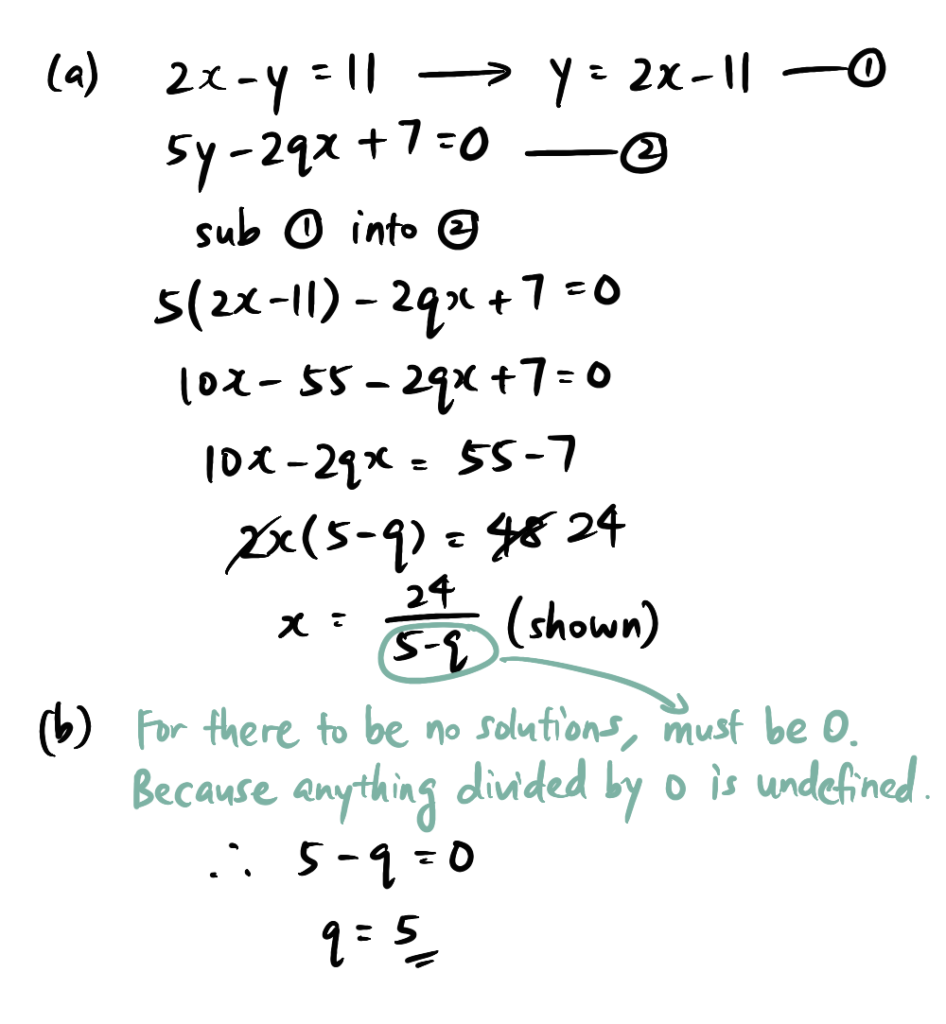 (a) 2x - y = 11 ⟶ y = 2x - 11 — ①
5y - 2qx + 7 = 0 — ②
sub ① into ②
5(2x - 11) - 2qx + 7 = 0
10x - 55 - 2qx + 7 = 0
10x - 2qx = 55 - 7
2x(5 - q) = 48 24
x = 24/(5 - q) (shown)
(b) For there to be no solutions, must be 0.
Because anything divided by 0 is undefined.
∴ 5 - q = 0
q = 5